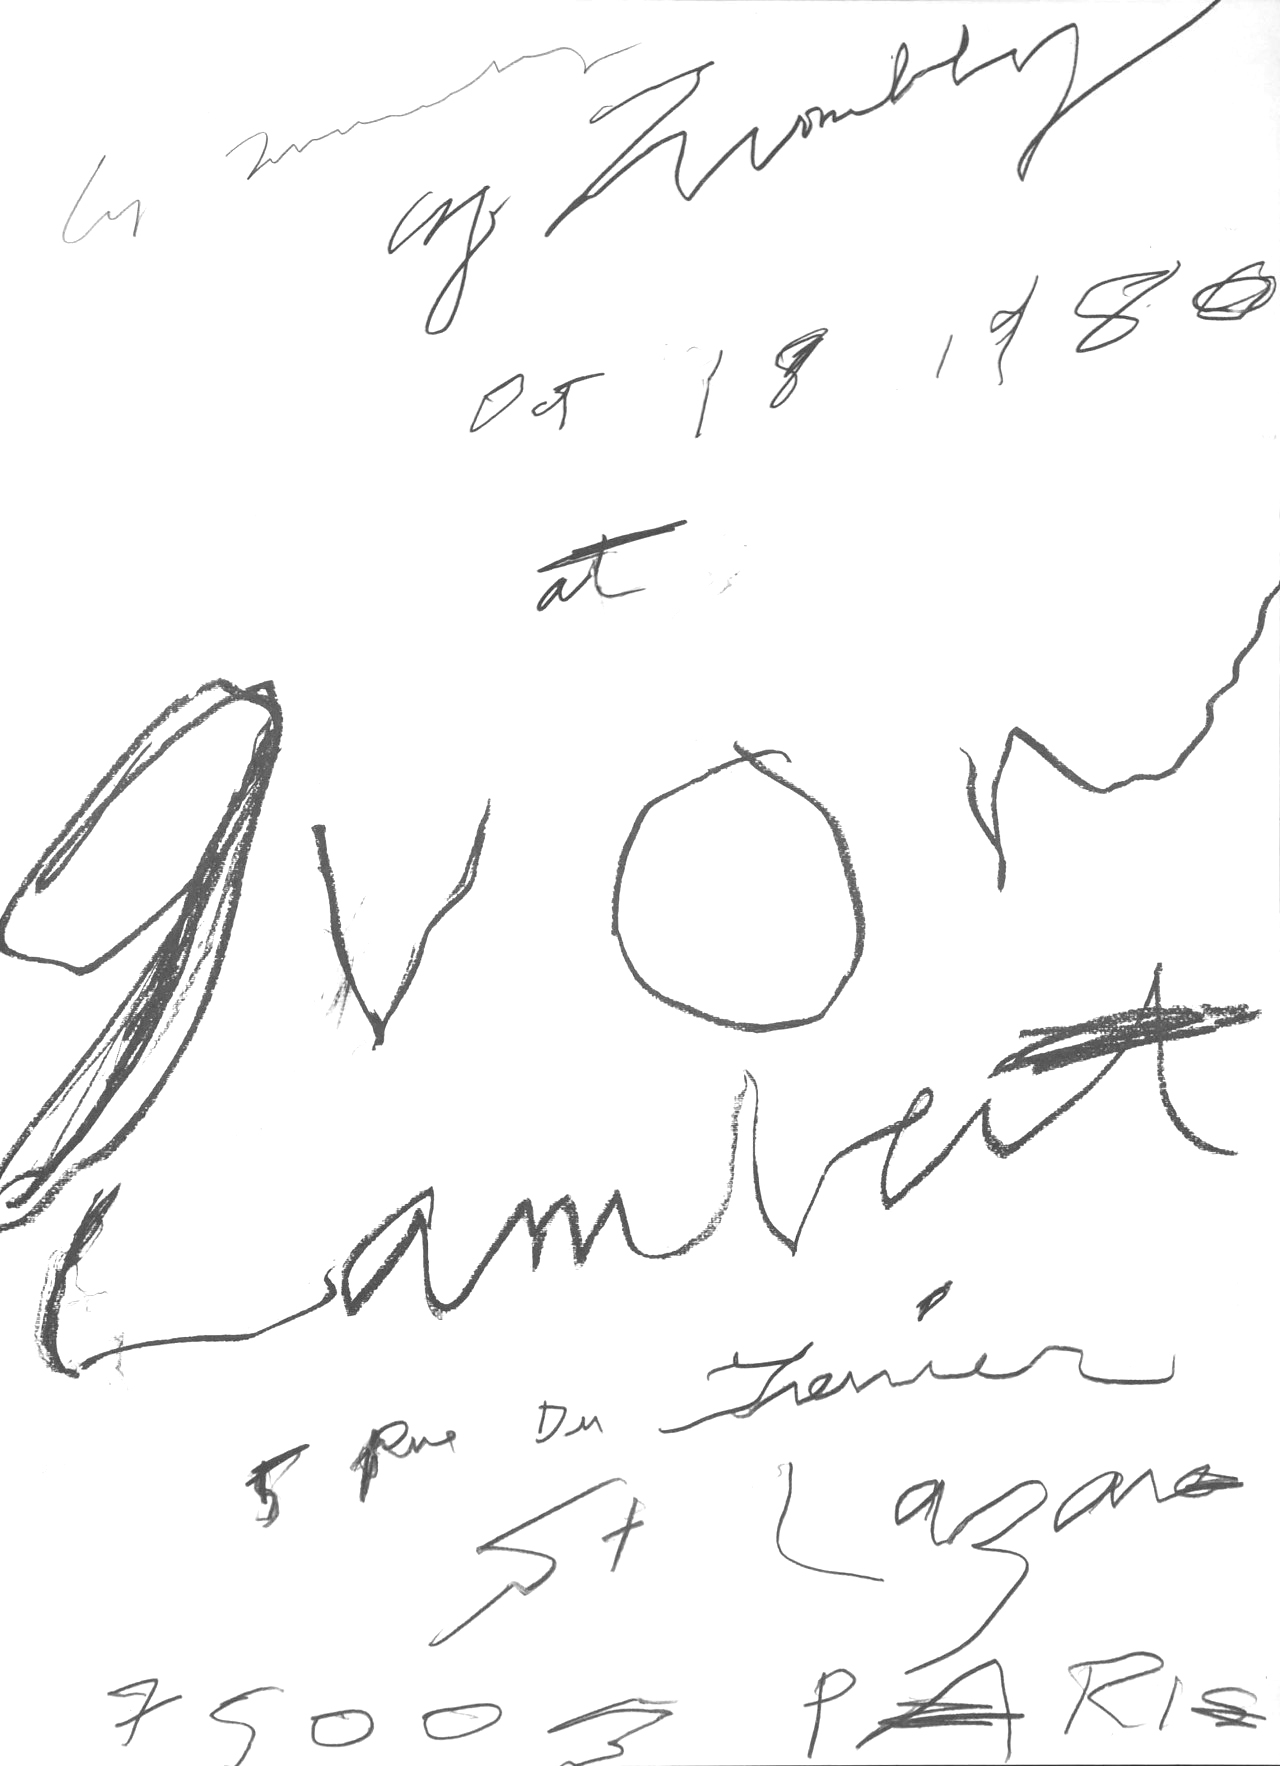 Cy Twombly
Oct 18 1980
at
yvon
Lambert
5 Rue Du Grenier
St Lazare
75003 PARIS